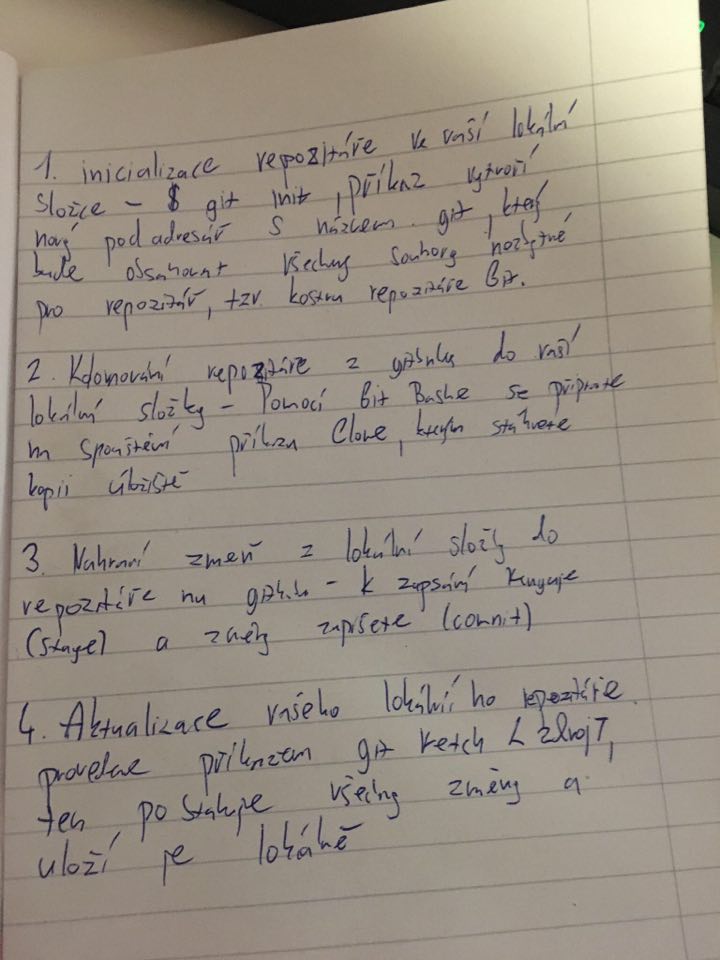 1. inicializace repozitáře ve vaší lokální
složce - $ git init, příkaz vytvoří
nový podadresář s názvem .git, který
bude obsahovat všechny soubory nezbytné
pro repozitář, tzv. kostru repozitáře Git.
2. Kdomování repozitáře z githubu do vaší
lokální složky - Pomocí Git Bashe se připravte
na spouštění příkazu Clone, kterým stáhnete
kopii úložiště
3. Nahraní změn z lokální složky do
repozitáře na githubu - k zapsání
(stage) a změny zapíšete (commit)
4. Aktualizace vašeho lokálního repozitáře
provedeme příkazem git ketch
ten postahuje všechny změny a
uloží je lokálně